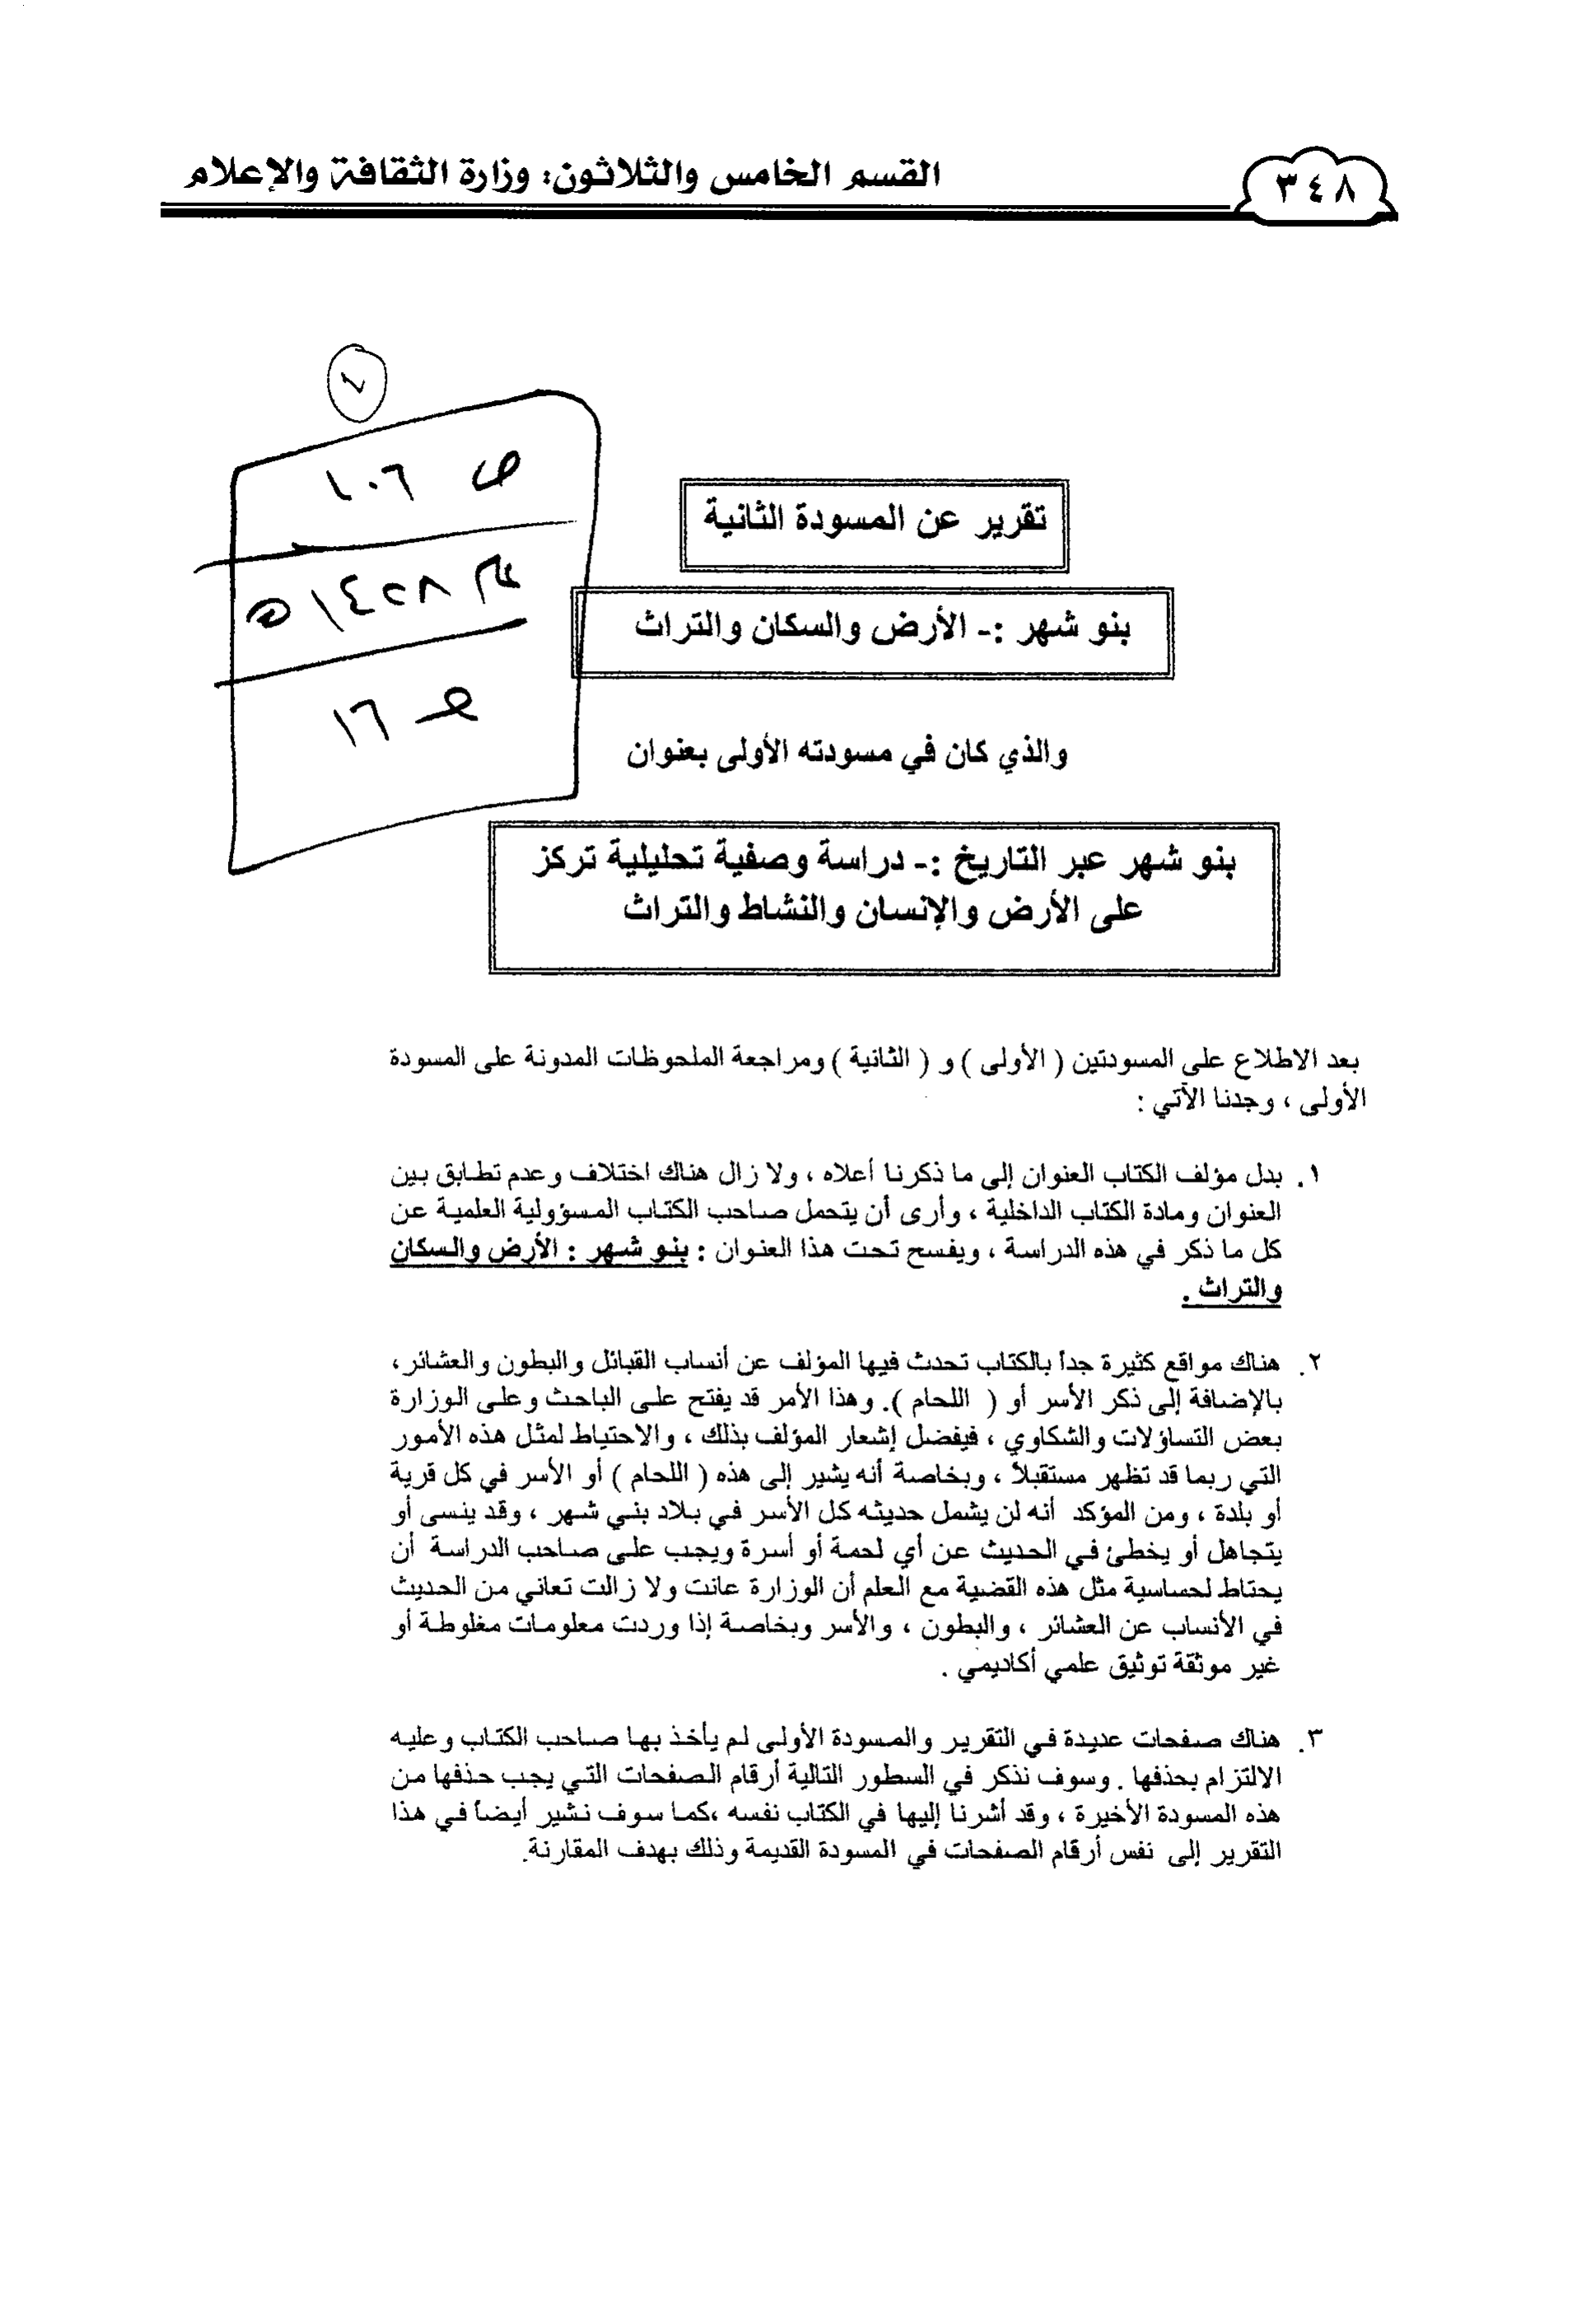 ٣٤٨
القسم الخامس والثلاثون: وزارة الثقافة والإعلام
ص ١٠٦
عام ١٤٢٨ هـ
١٦
تقرير عن المسودة الثانية
بنو شهر :- الأرض والسكان والتراث
والذي كان في مسودته الأولى بعنوان
بنو شهر عبر التاريخ :- دراسة وصفية تحليلية تركز
على الأرض والإنسان والنشاط والتراث
بعد الاطلاع على المسودتين ( الأولى ) و ( الثانية ) ومراجعة الملحوظات المدونة على المسودة
الأولى ، وجدنا الآتي :
١. بدل مؤلف الكتاب العنوان إلى ما ذكرنا أعلاه ، ولا زال هناك اختلاف وعدم تطابق بين
العنوان ومادة الكتاب الداخلية ، وأرى أن يتحمل صاحب الكتاب المسؤولية العلمية عن
كل ما ذكر في هذه الدراسة ، ويفسح تحت هذا العنوان : بنو شهر : الأرض والسكان
والتراث .
٢. هناك مواقع كثيرة جداً بالكتاب تحدث فيها المؤلف عن أنساب القبائل والبطون والعشائر،
بالإضافة إلى ذكر الأسر أو ( اللحام ). وهذا الأمر قد يفتح على الباحث وعلى الوزارة
بعض التساؤلات والشكاوي ، فيفضل إشعار المؤلف بذلك ، والاحتياط لمثل هذه الأمور
التي ربما قد تظهر مستقبلاً ، وبخاصة أنه يشير إلى هذه ( اللحام ) أو الأسر في كل قرية
أو بلدة ، ومن المؤكد أنه لن يشمل حديثه كل الأسر في بلاد بني شهر ، وقد ينسى أو
يتجاهل أو يخطئ في الحديث عن أي لحمة أو أسرة ويجب على صاحب الدراسة أن
يحتاط لحساسية مثل هذه القضية مع العلم أن الوزارة عانت ولا زالت تعاني من الحديث
في الأنساب عن العشائر ، والبطون ، والأسر وبخاصة إذا وردت معلومات مغلوطة أو
غير موثقة توثيق علمي أكاديمي .
٣. هناك صفحات عديدة في التقرير والمسودة الأولى لم يأخذ بها صاحب الكتاب وعليه
الالتزام بحذفها . وسوف نذكر في السطور التالية أرقام الصفحات التي يجب حذفها من
هذه المسودة الأخيرة ، وقد أشرنا إليها في الكتاب نفسه ،كما سوف نشير أيضاً في هذا
التقرير إلى نفس أرقام الصفحات في المسودة القديمة وذلك بهدف المقارنة.